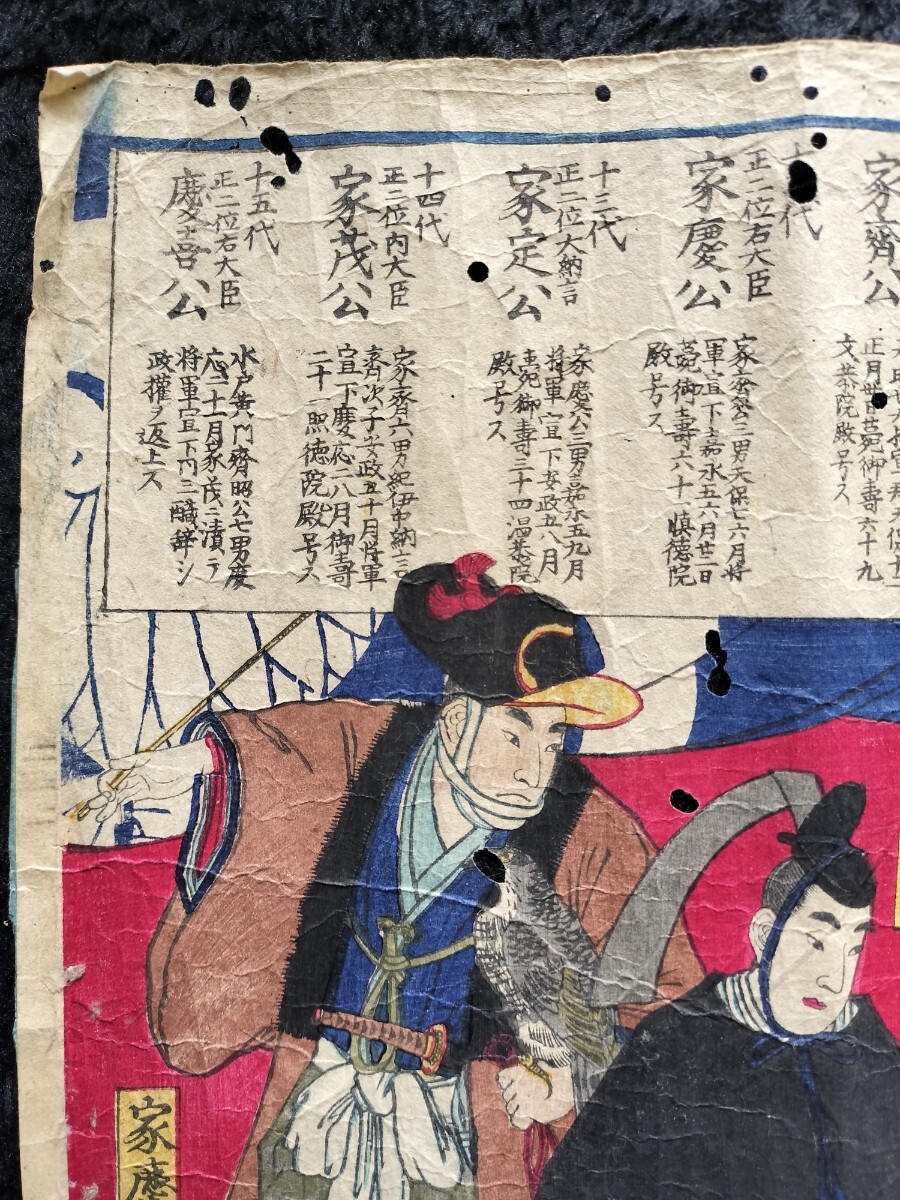 家齊公
正月卅日薨御壽六十九
文恭院殿号ス
代
正二位右大臣
家慶公
家斉公三男天保七六月将
軍宣下嘉永五六月廿二日
薨御壽六十 慎徳院
殿号ス
十三代
正二位大納言
家定公
家慶公三男嘉永五九月
将軍宣下安政五八月
薨御壽三十四温恭院
殿号ス
十四代
正二位内大臣
家茂公
家齊六男紀伊中納言
斉次子安政五十月将軍
宣下慶応二八月御壽
二十一照徳院殿号ス
十五代
正二位右大臣
慶喜公
水戸黄門齊昭公七男慶
応二十二月家茂ニ漬テ
将軍宣下同三職辞シ
政權ヲ返上ス
家慶